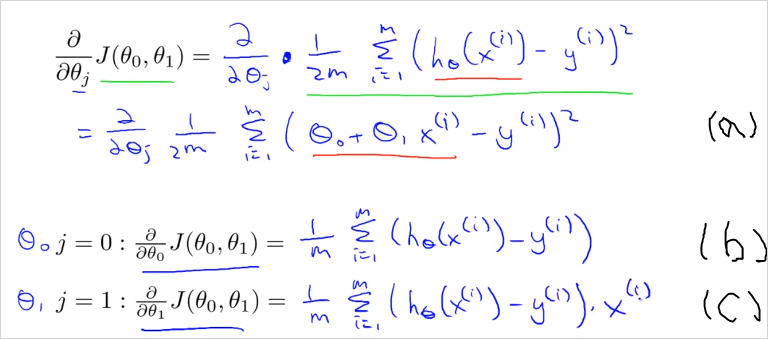 ∂/∂θj J(θ0, θ1) = ∂/∂θj · 1/2m Σ_{i=1}^{m} (hθ(x^(i)) − y^(i))²
= ∂/∂θj 1/2m Σ_{i=1}^{m} (θ0 + θ1 x^(i) − y^(i))² (a)
θ0 j = 0 : ∂/∂θ0 J(θ0, θ1) = 1/m Σ_{i=1}^{m} (hθ(x^(i)) − y^(i)) (b)
θ1 j = 1 : ∂/∂θ1 J(θ0, θ1) = 1/m Σ_{i=1}^{m} (hθ(x^(i)) − y^(i)) · x^(i) (c)